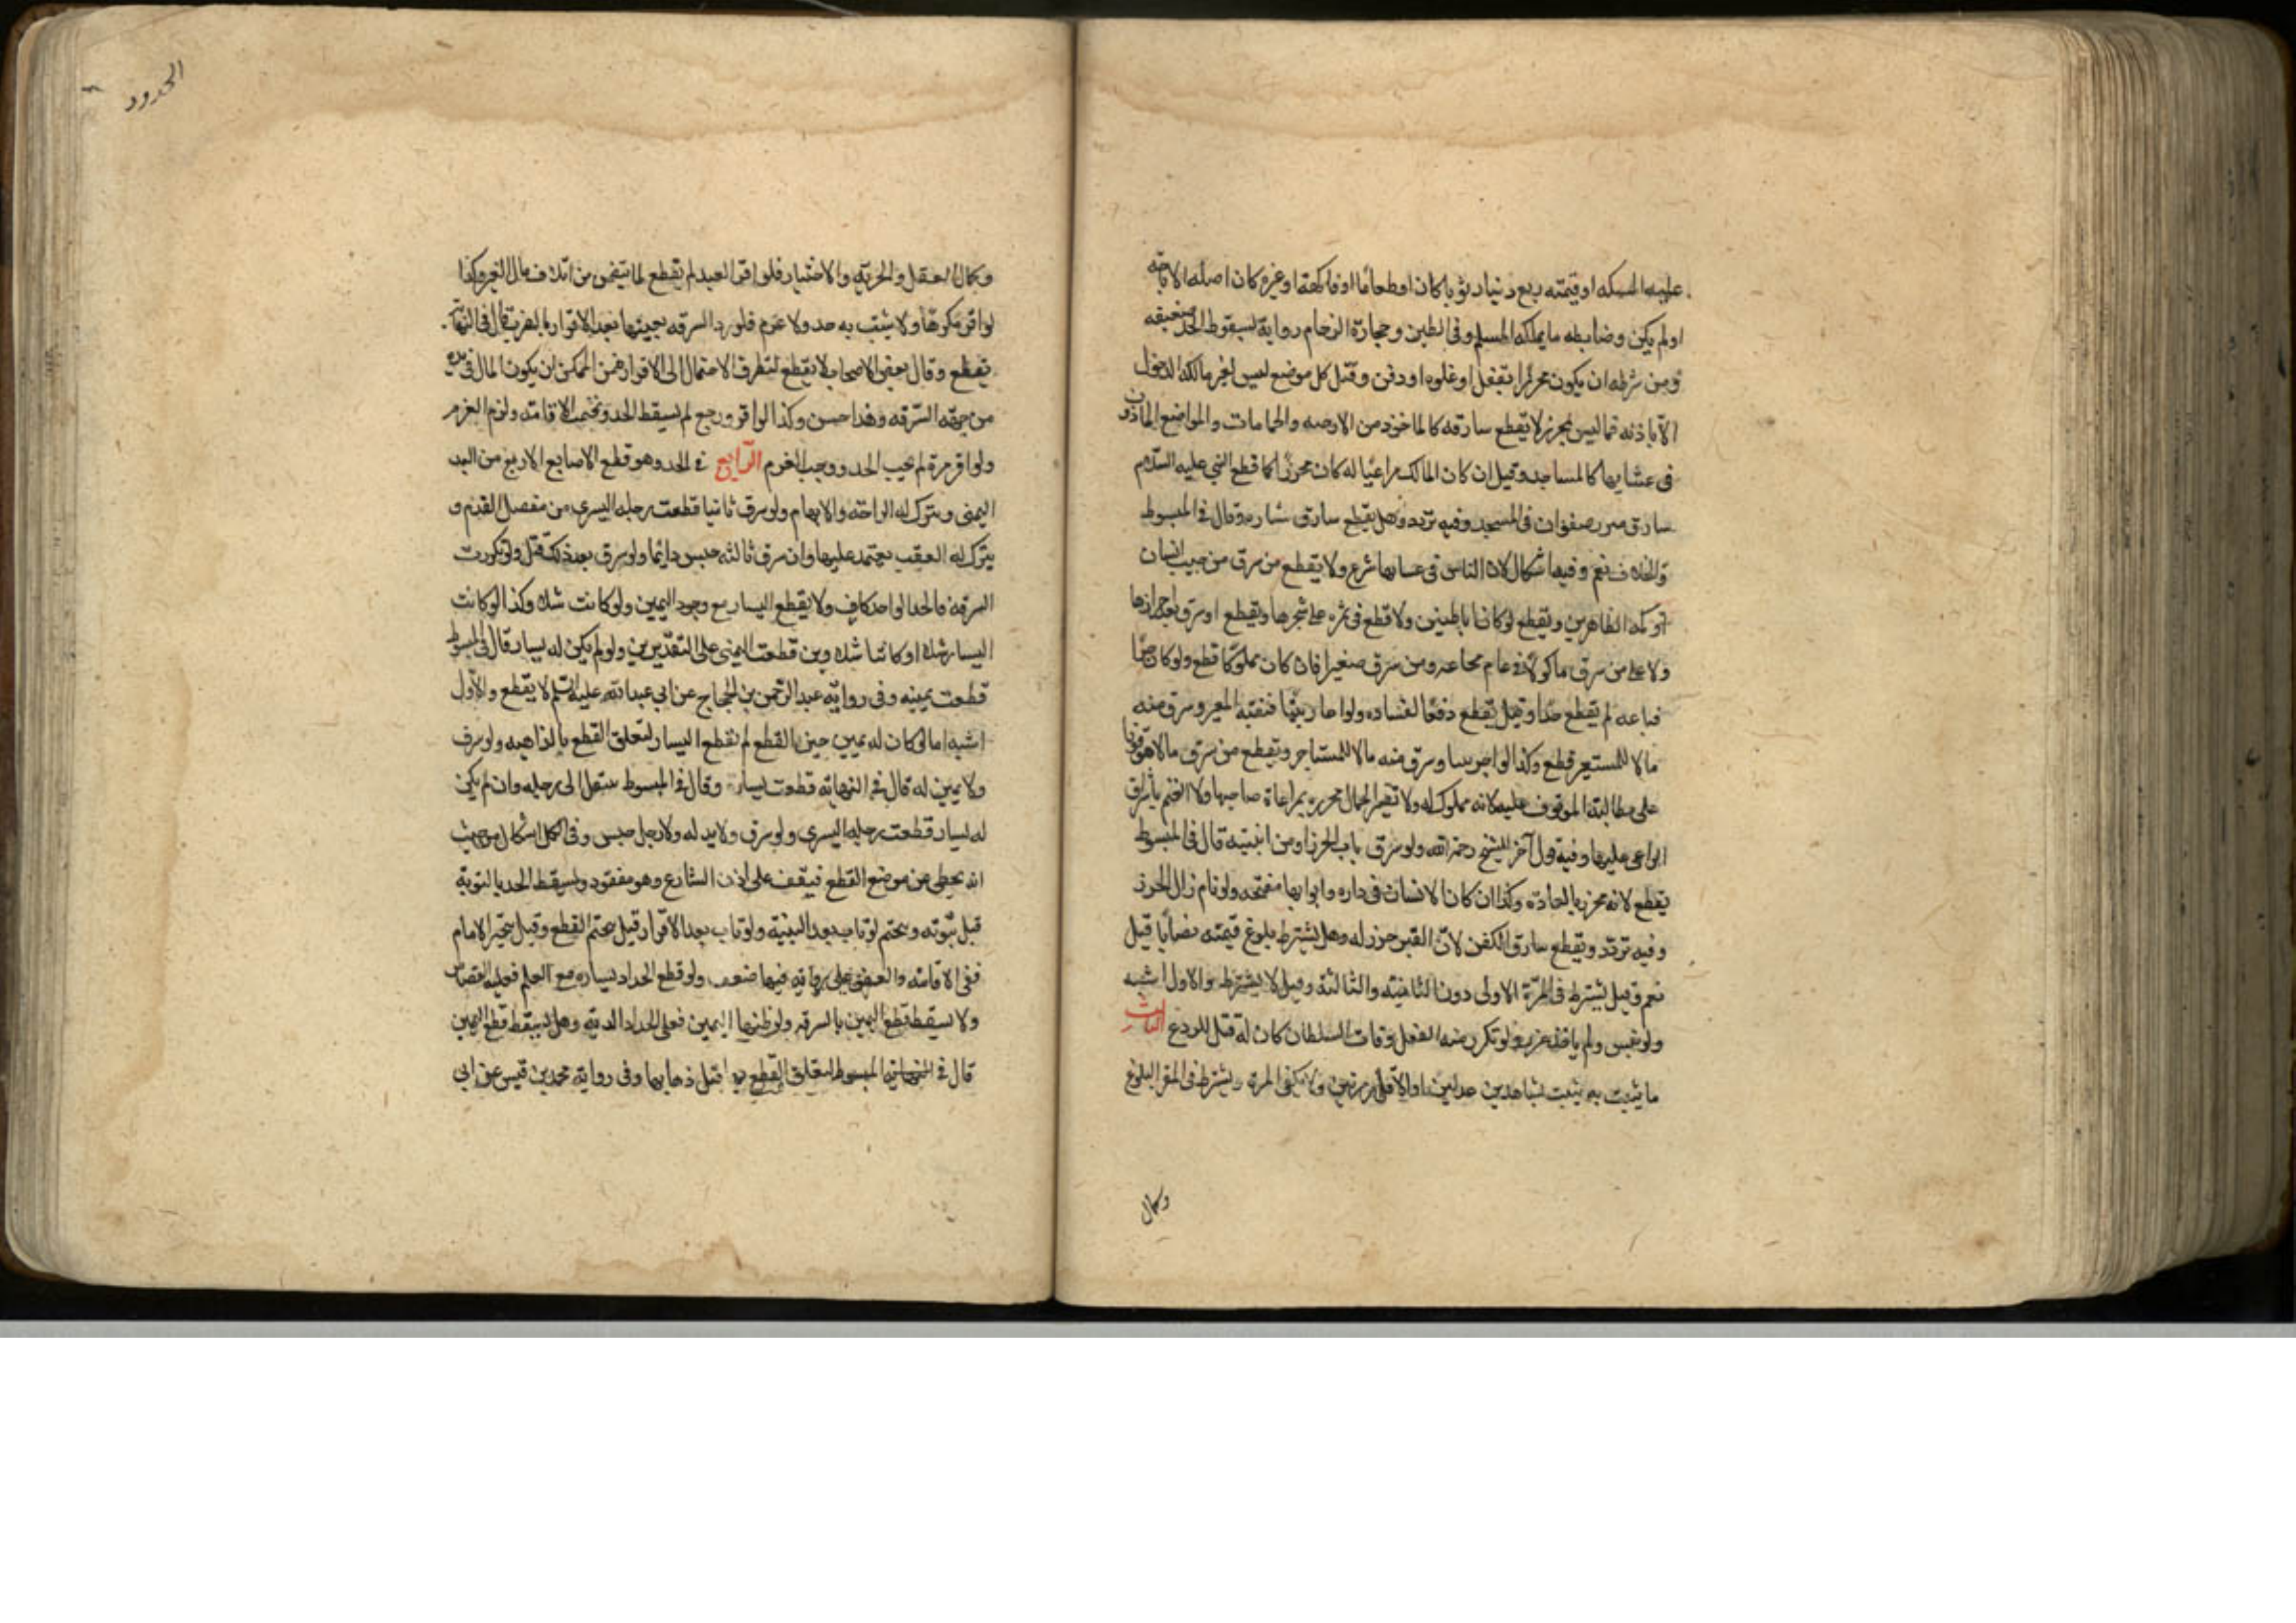 عليه السكه او قيمته ربع دينار ثوبا كان او طعاما او فاكهة او غيره كان اصله الاباحة
او لم يكن وضابطه ما يملكه المسلم وفى الطين وحجارة الرخام رواية بسقوط الحد ضعيفه
ومن شرطه ان يكون محرزا بقفل او غلق او دفن وقيل كل موضع ليس لغير مالكه الدخول
الا باذنه فما ليس بمحرز لا يقطع سارقه كالماخوذ من الارحيه والحمامات والمواضع الماذون
فى غشيانها كالمساجد وقيل ان كان المالك مراعيا له كان محرزا كما قطع النبي عليه السلام
سارق مئزر صفوان فى المسجد وفيه تردد وهل يقطع سارق ستاره قال فى المبسوط
والخلاف نعم وفيه اشكال لان الناس فى غشيانها شرع ولا يقطع من سرق من جيب انسان
او كمه الظاهرين ويقطع لو كانا باطنين ولا قطع فى ثمره على شجرها ويقطع لو سرق بعد احرازها
ولا على من سرق ماكولا فى عام مجاعه ومن سرق صغيرا فان كان مملوكا قطع ولو كان حرا
فباعه لم يقطع حدا وقيل يقطع دفعا لفساده ولو اعار بيتا فنقبه المعير وسرق منه
مالا للمستعير قطع وكذا لو اجر بيتا وسرق منه مالا للمستاجر ويقطع من سرق مالا موقوفا
على مطالبة الموقوف عليه لانه مملوك له ولا تصير الجمال محرزه بمراعاة صاحبها ولا الغنم باشراف
الراعى عليها وفيه قول آخر للشيخ رحمه الله ولو سرق باب الحرز او من ابنيته قال فى المبسوط
يقطع لانه محرز بالعادة وكذا ان كان الانسان فى داره وابوابها مفتحه ولو نام زال الحرز
وفيه تردد ويقطع سارق الكفن لان القبر حرز له وهل يشترط بلوغ قيمته نصابا قيل
نعم وقيل يشترط فى المرة الاولى دون الثانية والثالثة وقيل لا يشترط والاول اشبه
ولو نبش ولم ياخذ عزر ولو تكرر منه الفعل وفات السلطان كان له قتله للردع الثالث
ما يثبت به يثبت بشاهدين عدلين او الاقرار مرتين ولا يكفى المرة ويشترط فى المقر البلوغ
وكمال
الحدود
وكمال العقل والحرية والاختيار فلو اقر العبد لم يقطع لما يتضمن من اتلاف مال الغير وكذا
لو اقر مكرها ولا يثبت به حد ولا غرم فلو رد السرقه بعينها بعد الاقرار بالضرب قال فى النهاية
يقطع وقال بعض الاصحاب لا يقطع لتطرق الاحتمال الى الاقرار فمن الممكن ان يكون المال فى يده
من جهة السرقه وهذا حسن وكذا لو اقر ورجع لم يسقط الحد وتحتمت الاقامة ولزم الغرم
ولو اقر مرة لم يجب الحد ووجب الغرم الرابع فى الحد وهو قطع الاصابع الاربع من اليد
اليمنى ويترك له الراحة والابهام ولو سرق ثانيا قطعت رجله اليسرى من مفصل القدم و
يترك له العقب يعتمد عليها وان سرق ثالثه حبس دائما ولو سرق بعد ذلك قتل ولو تكررت
السرقة فالحد الواحد كاف ولا يقطع اليسار مع وجود اليمين ولو كانت شلاء وكذا لو كانت
اليسار شلاء او كانتا شلاوين قطعت اليمنى على التقديرين ولو لم يكن له يسار قال فى المبسوط
قطعت يمينه وفى رواية عبد الرحمن بن الحجاج عن ابى عبد الله عليه السلم لا يقطع والاول
اشبه اما لو كان له يمين حين القطع لم تقطع اليسار لتعلق القطع بالذاهبه ولو سرق
ولا يمين له قال فى النهاية قطعت يساره وقال فى المبسوط ينتقل الى رجله وان لم يكن
له يسار قطعت رجله اليسرى ولو سرق ولا يد له ولا رجل حبس وفى الكل اشكال من حيث
انه تخطى عن موضع القطع فيقف على اذن الشارع وهو مفقود ويسقط الحد بالتوبة
قبل ثبوته ويتحتم لو تاب بعد البينة ولو تاب بعد الاقرار قيل يتحتم القطع وقيل يتخير الامام
فى الاقامة والعفو على رواية فيها ضعف ولو قطع الحداد يساره مع العلم فعليه القصاص
ولا يسقط قطع اليمين بالسرقه ولو ظنها اليمين فعلى الحداد الدية وهل يسقط قطع اليمين
قال فى المبسوط لا لتعلق القطع بها قبل ذهابها وفى رواية محمد بن قيس عن ابى